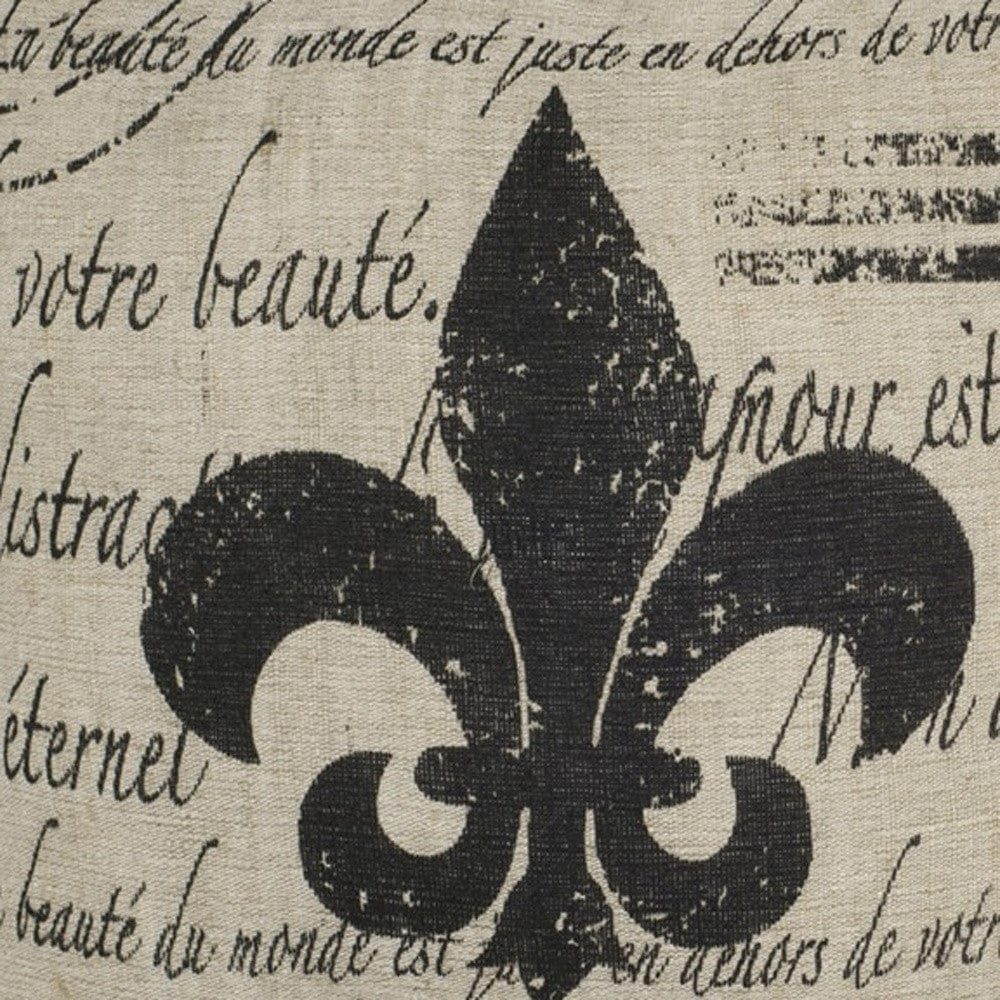 La beauté du monde est juste en dehors de votr
votre beauté.
mour est
istrac
éternel
beauté du monde est ju en dehors de votr